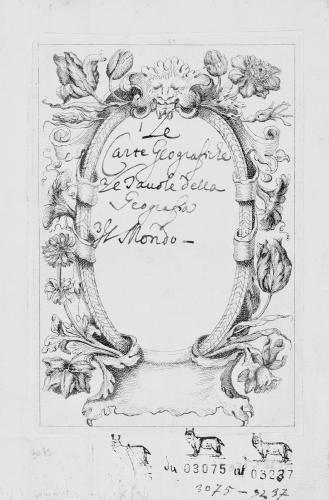 1 Le
Carte Geografiche
2 Le Tavole della
Geografia
3 Il Mondo
du 03075 al 03237
3075 - 3237